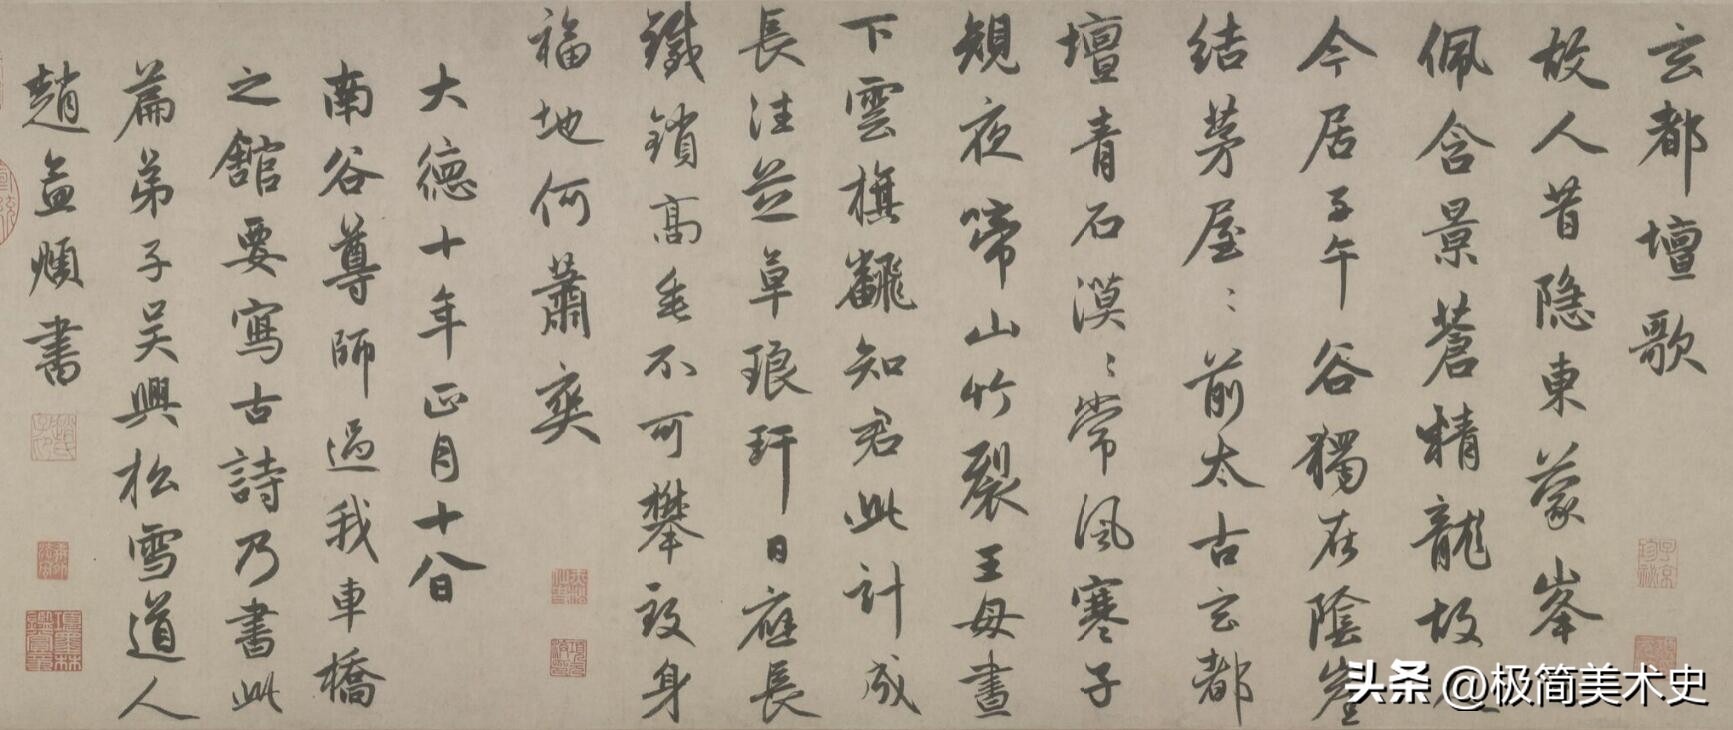 玄都壇歌
故人昔隐東蒙峯
佩含景蒼精龍故
今居子午谷獨在陰崖
結茅屋〻前太古玄都
壇青石漠〻常風寒子
規夜啼山竹裂王母晝
下雲旗飜知君此計成
長往芝草琅玕日應長
鐵鎖高垂不可攀致身
福地何蕭爽
大德十年正月十八日
南谷尊師過我車橋
之館要寫古詩乃書此
篇弟子吴興松雪道人
趙孟頫書
头条 @极简美术史